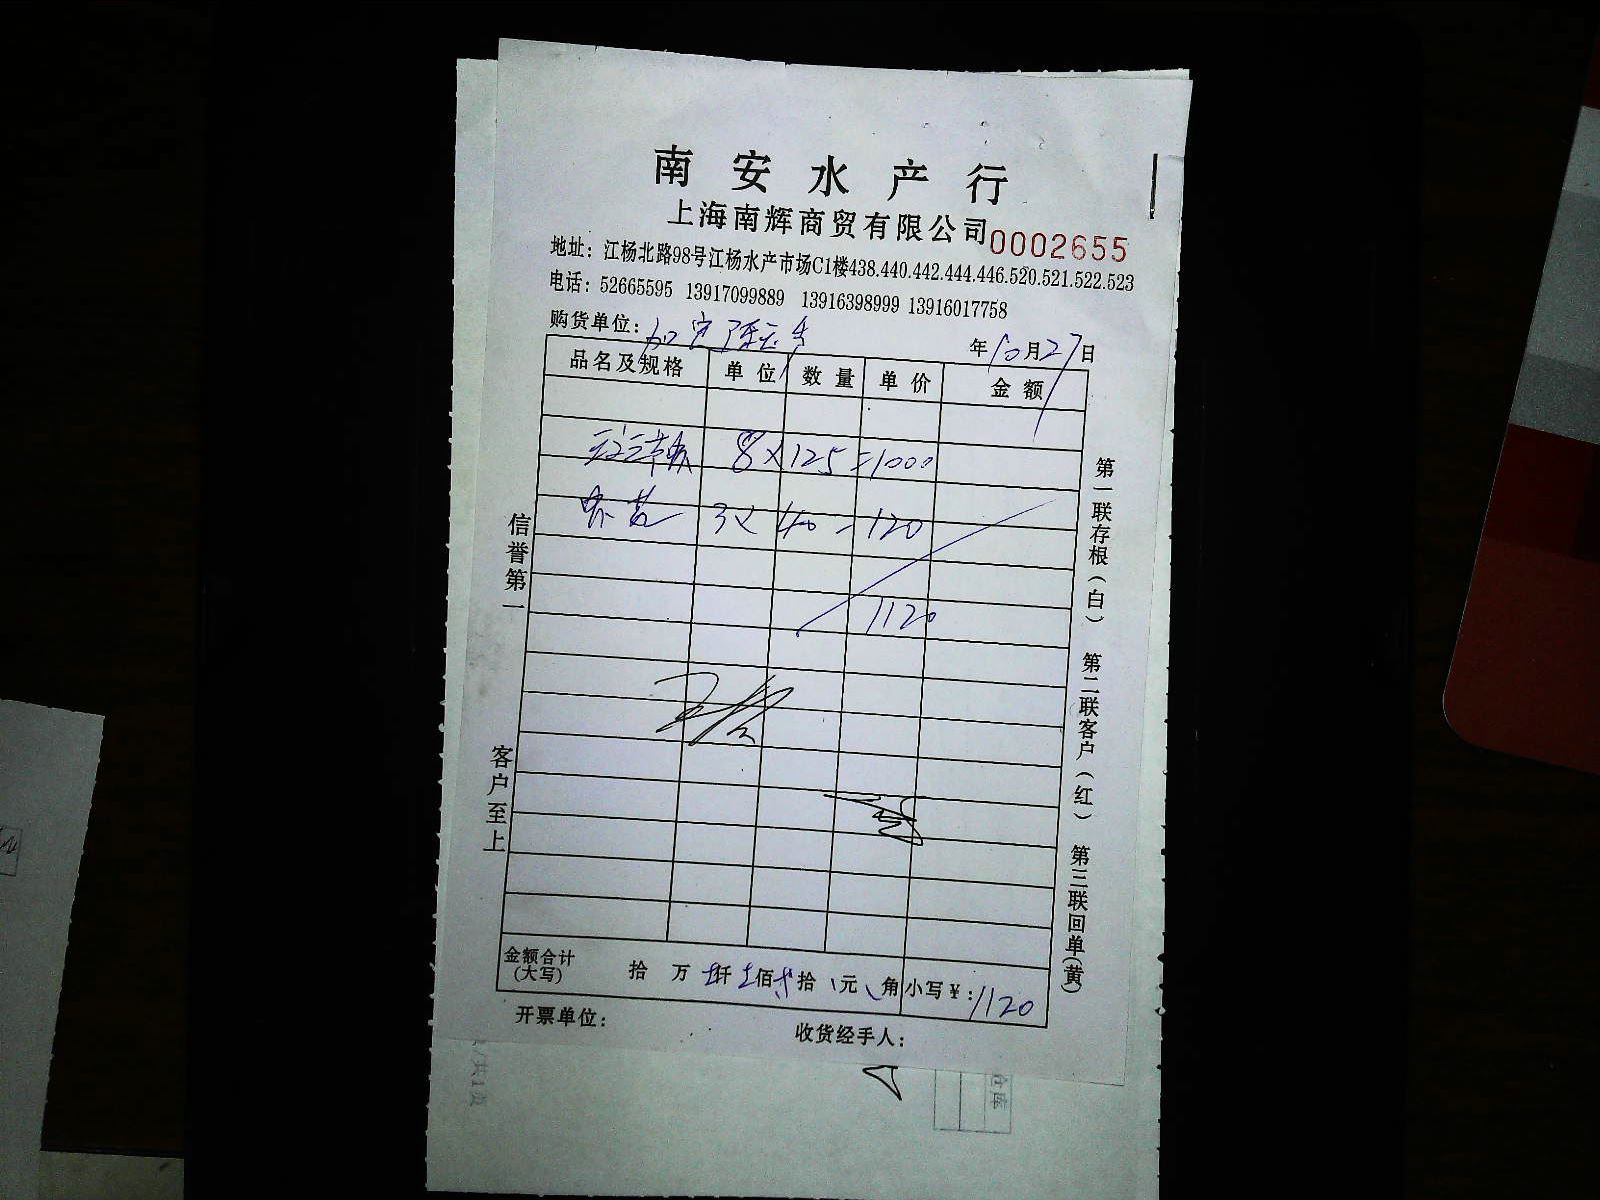 南安水产行
上海南辉商贸有限公司 0002655
地址：江杨北路98号江杨水产市场C1楼438.440.442.444.446.520.521.522.523
电话：52665595 13917099889 13916398999 13916017758
购货单位： 年10月27日
品名及规格 单位 数量 单价 金额
8×125=1000
3×40=120
1120
金额合计（大写） 拾 万 仟 佰 拾 元 角 小写￥：1120
开票单位： 收货经手人：
信誉第一 客户至上
第一联存根（白） 第二联客户（红） 第三联回单（黄）
仓库